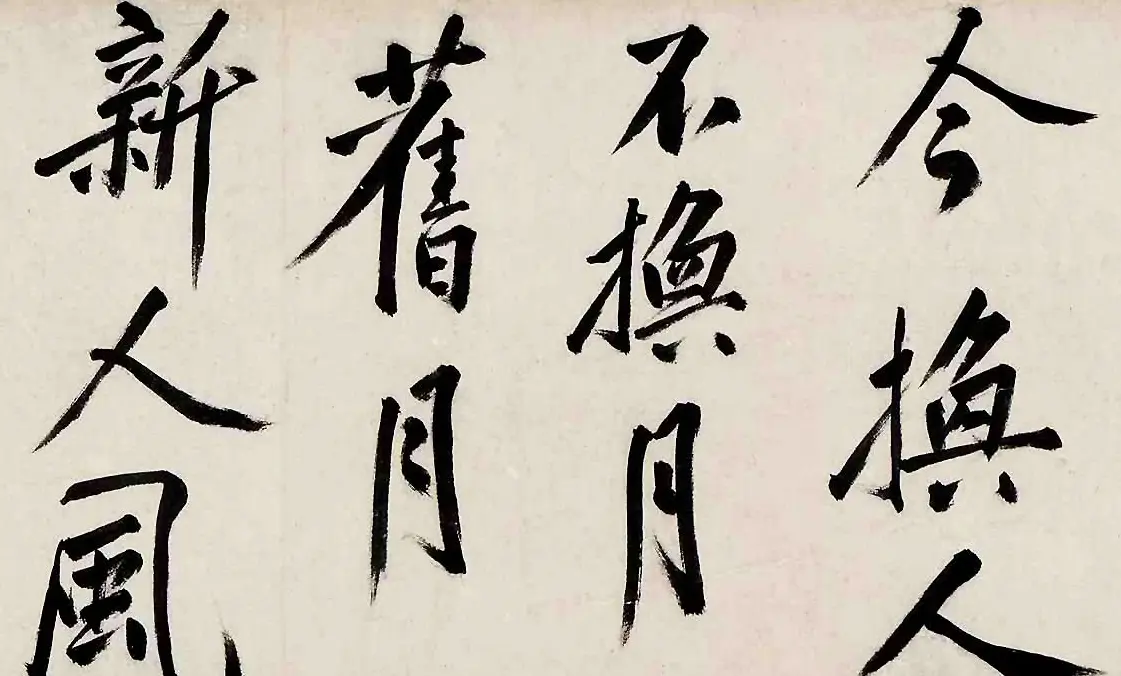 今換人
不換月
舊月
新人風